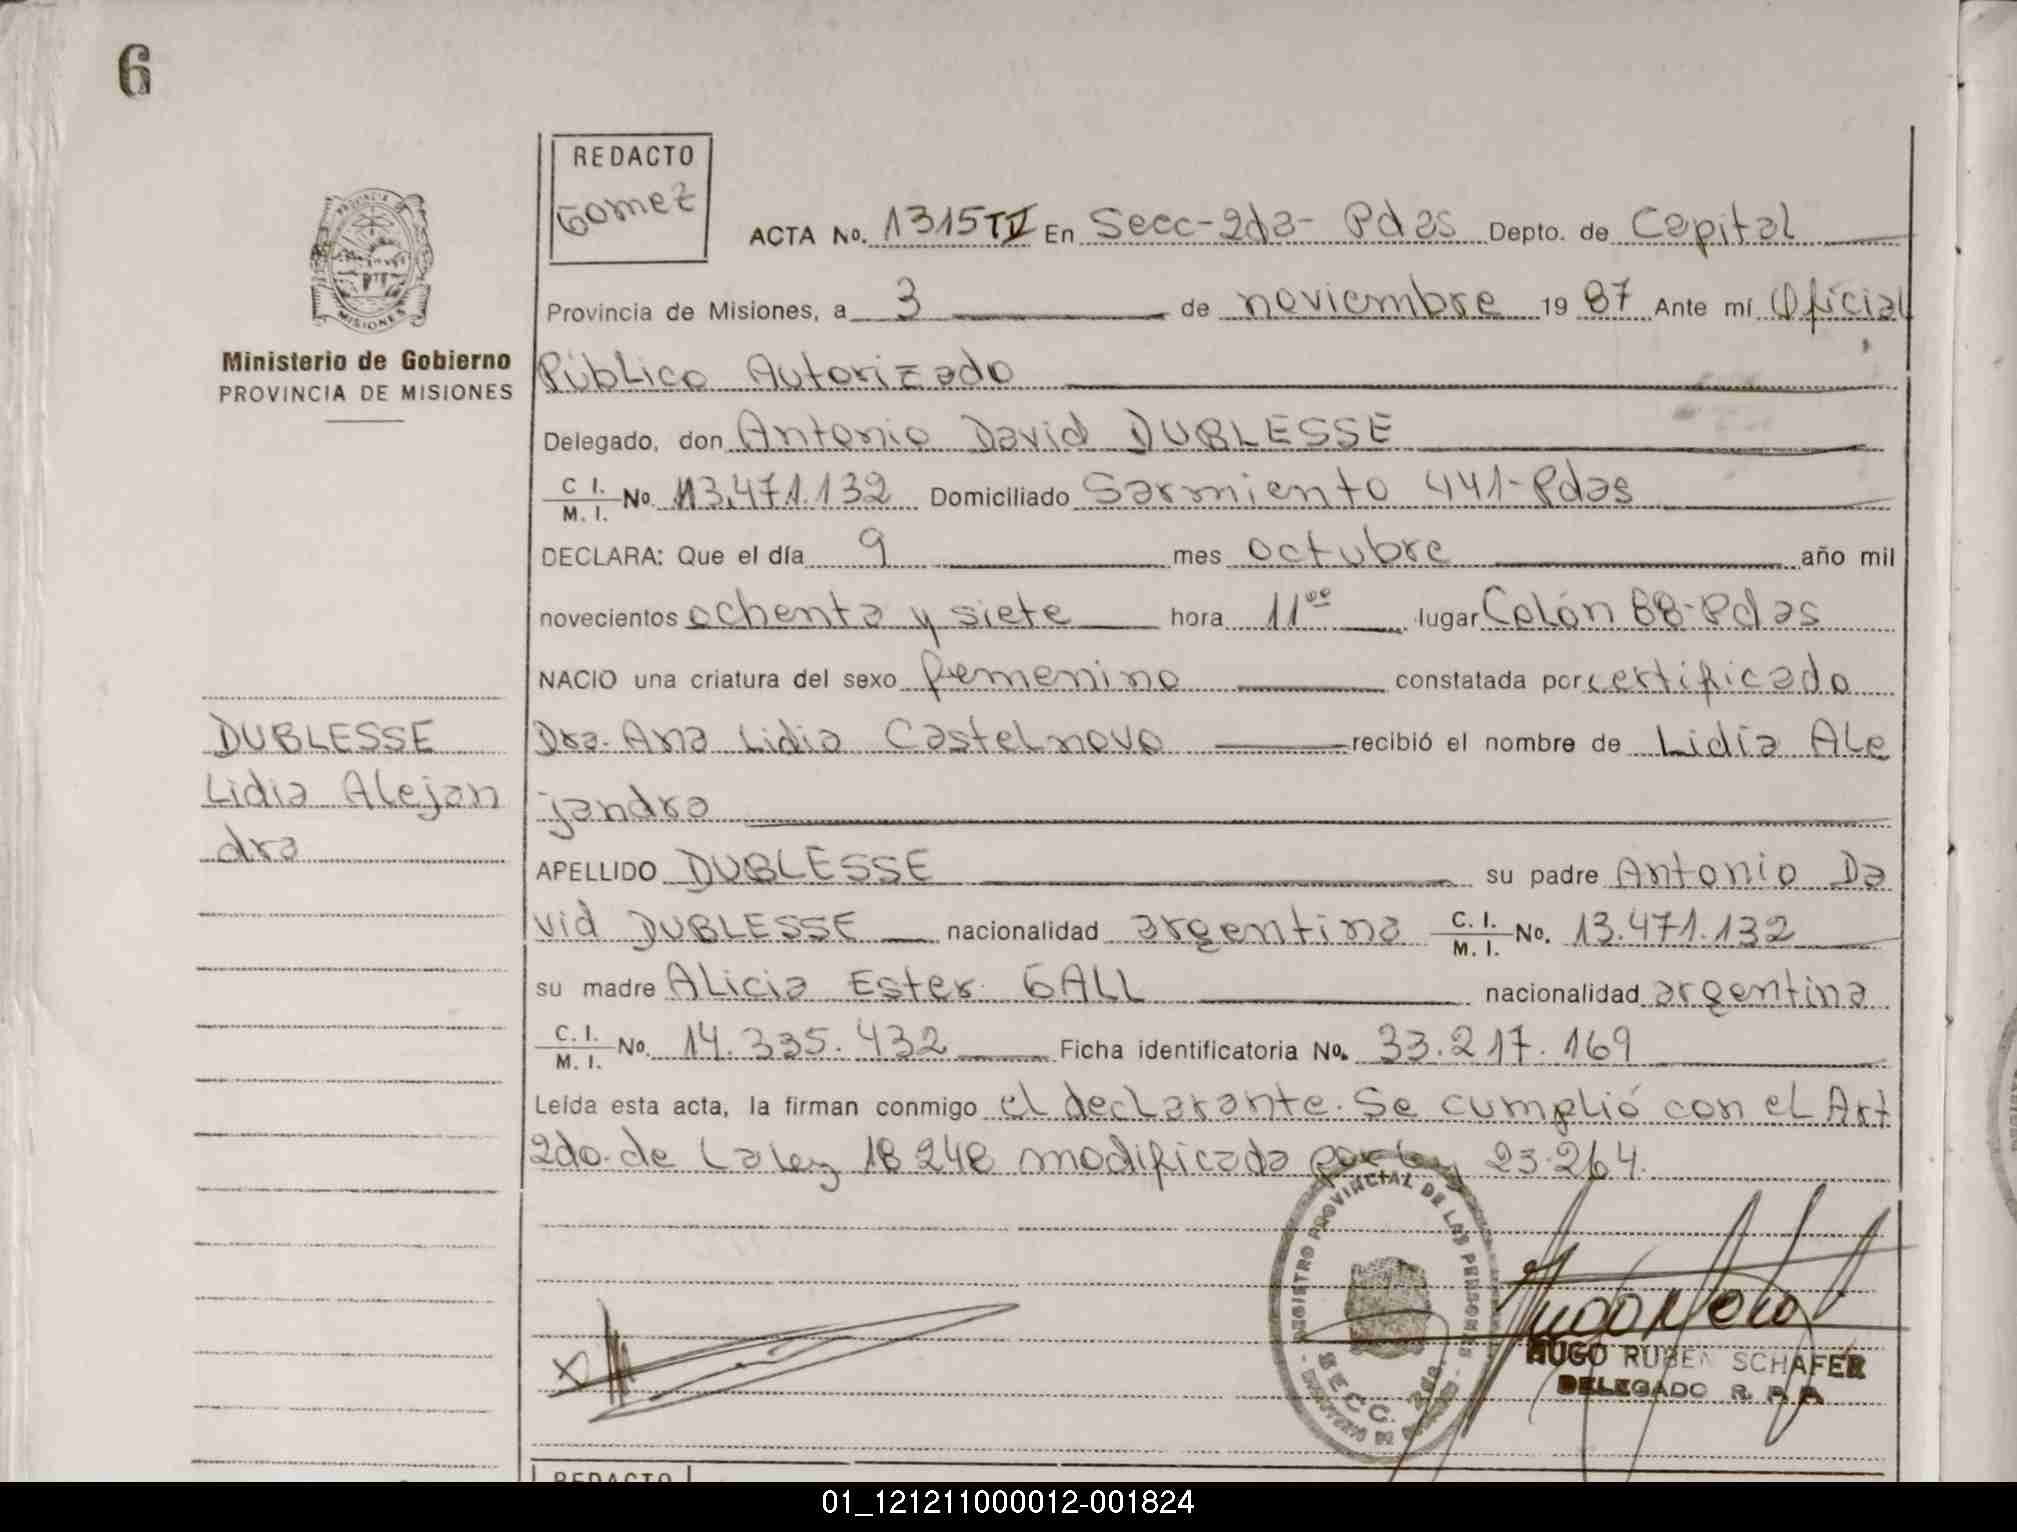 6
REDACTO
Gomez
ACTA No. 1315 TV En Secc-2da- Pdas Depto. de Capital
PROVINCIA DE
MISIONES
Provincia de Misiones, a 3 de noviembre 1987 Ante mí Oficial
Ministerio de Gobierno
PROVINCIA DE MISIONES
Público Autorizado
Delegado, don Antonio David DUBLESSE
C I. M. I. No. 13.471.132 Domiciliado Sarmiento 441-Pdas
DECLARA: Que el día 9 mes octubre año mil
novecientos ochenta y siete hora 11°° lugar Colón 88-Pdas
NACIO una criatura del sexo femenino constatada por certificado
DUBLESSE
Dra. Ana Lidia Castelnovo recibió el nombre de Lidia Ale
Lidia Alejan
jandra
dra
APELLIDO DUBLESSE su padre Antonio Da
vid DUBLESSE nacionalidad argentina C. I. M. I. No. 13.471.132
su madre Alicia Ester GALL nacionalidad argentina
C. I. M. I. No. 14.335.432 Ficha identificatoria No. 33.217.169
Leída esta acta, la firman conmigo el declarante. Se cumplió con el Art
2do. de La Ley 18248 modificada por Ley 23.264.
REGISTRO PROVINCIAL DE LAS PERSONAS
SECC. 2da.
HUGO RUBEN SCHAFER
DELEGADO R. P. P.
REDACTO
01_121211000012-001824